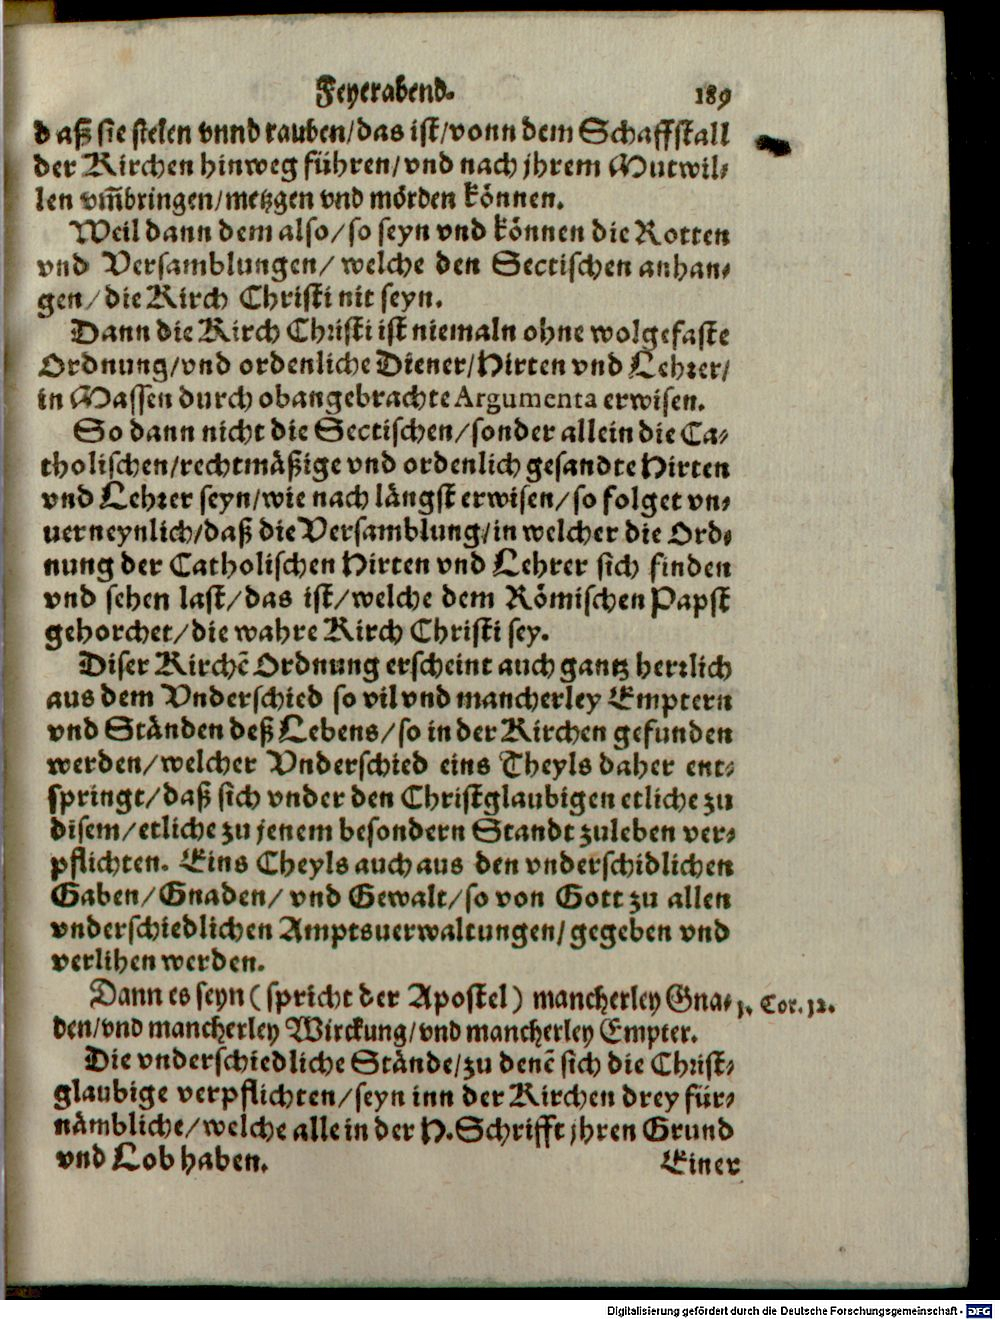 Feyerabend. 189
daß sie stelen vnnd rauben/das ist/vonn dem Schaffstall
der Kirchen hinweg führen/vnd nach jhrem Mutwil-
len vm̄bringen/metzgen vnd mörden können.
Weil dann dem also/so seyn vnd können die Rotten
vnd Versamblungen/welche den Sectischen anhan-
gen/die Kirch Christi nit seyn.
Dann die Kirch Christi ist niemaln ohne wolgefaste
Ordnung/vnd ordenliche Diener/Hirten vnd Lehrer/
in Massen durch obangebrachte Argumenta erwisen.
So dann nicht die Sectischen/sonder allein die Ca-
tholischen/rechtmäßige vnd ordenlich gesandte Hirten
vnd Lehrer seyn/wie nach längst erwisen/so folget vn-
uerneynlich/daß die Versamblung/in welcher die Ord-
nung der Catholischen Hirten vnd Lehrer sich finden
vnd sehen last/das ist/welche dem Römischen Papst
gehorchet/die wahre Kirch Christi sey.
Diser Kirchē Ordnung erscheint auch gantz herrlich
aus dem Vnderschied so vil vnd mancherley Emptern
vnd Ständen deß Lebens/so in der Kirchen gefunden
werden/welcher Vnderschied eins Theyls daher ent-
springt/daß sich vnder den Christglaubigen etliche zu
disem/etliche zu jenem besondern Standt zuleben ver-
pflichten. Eins Theyls auch aus den vnderschidlichen
Gaben/Gnaden/vnd Gewalt/so von Gott zu allen
vnderschiedlichen Amptsuerwaltungen/gegeben vnd
verlihen werden.
Dann es seyn (spricht der Apostel) mancherley Gna- 1. Cor. 12.
den/vnd mancherley Wirckung/vnd mancherley Empter.
Die vnderschiedliche Stände/zu denē sich die Christ-
glaubige verpflichten/seyn inn der Kirchen drey für-
nämbliche/welche alle in der H. Schrifft jhren Grund
vnd Lob haben. Einer
Digitalisierung gefördert durch die Deutsche Forschungsgemeinschaft - DFG